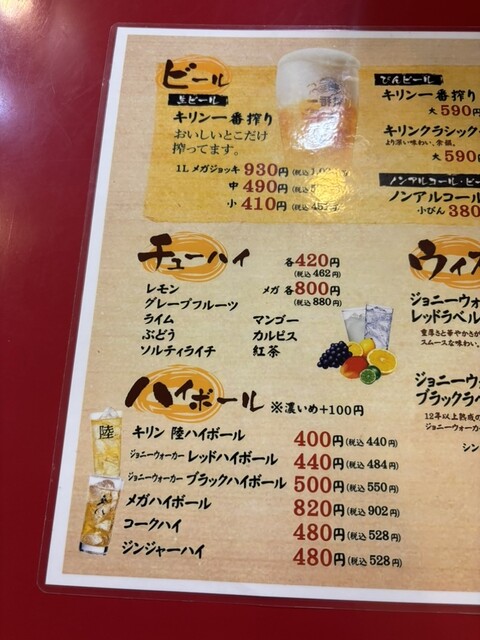 ビール
生ビール
キリン一番搾り
おいしいとこだけ
搾ってます。
1L メガジョッキ 930円
中 490円
小 410円
びんビール
キリン一番搾り
大 590
キリンクラシック
より深い味わい、余韻。
大 590
ノンアルコール・ビー
ノンアルコール
小びん 380
チューハイ 各420円
(税込462円)
メガ 各800円
(税込880円)
レモン
グレープフルーツ
ライム マンゴー
ぶどう カルピス
ソルティライチ 紅茶
ハイボール ※濃いめ+100円
陸
キリン 陸ハイボール 400円(税込440円)
ジョニーウォーカー レッドハイボール 440円(税込484円)
ジョニーウォーカー ブラックハイボール 500円(税込550円)
メガハイボール 820円(税込902円)
コークハイ 480円(税込528円)
ジンジャーハイ 480円(税込528円)
ウィス
ジョニーウォ
レッドラベル
重厚さと華やかさが
スムースな味わい。
ジョニーウォ
ブラックラベ
12年以上熟成の
ジョニーウォーカー
シン